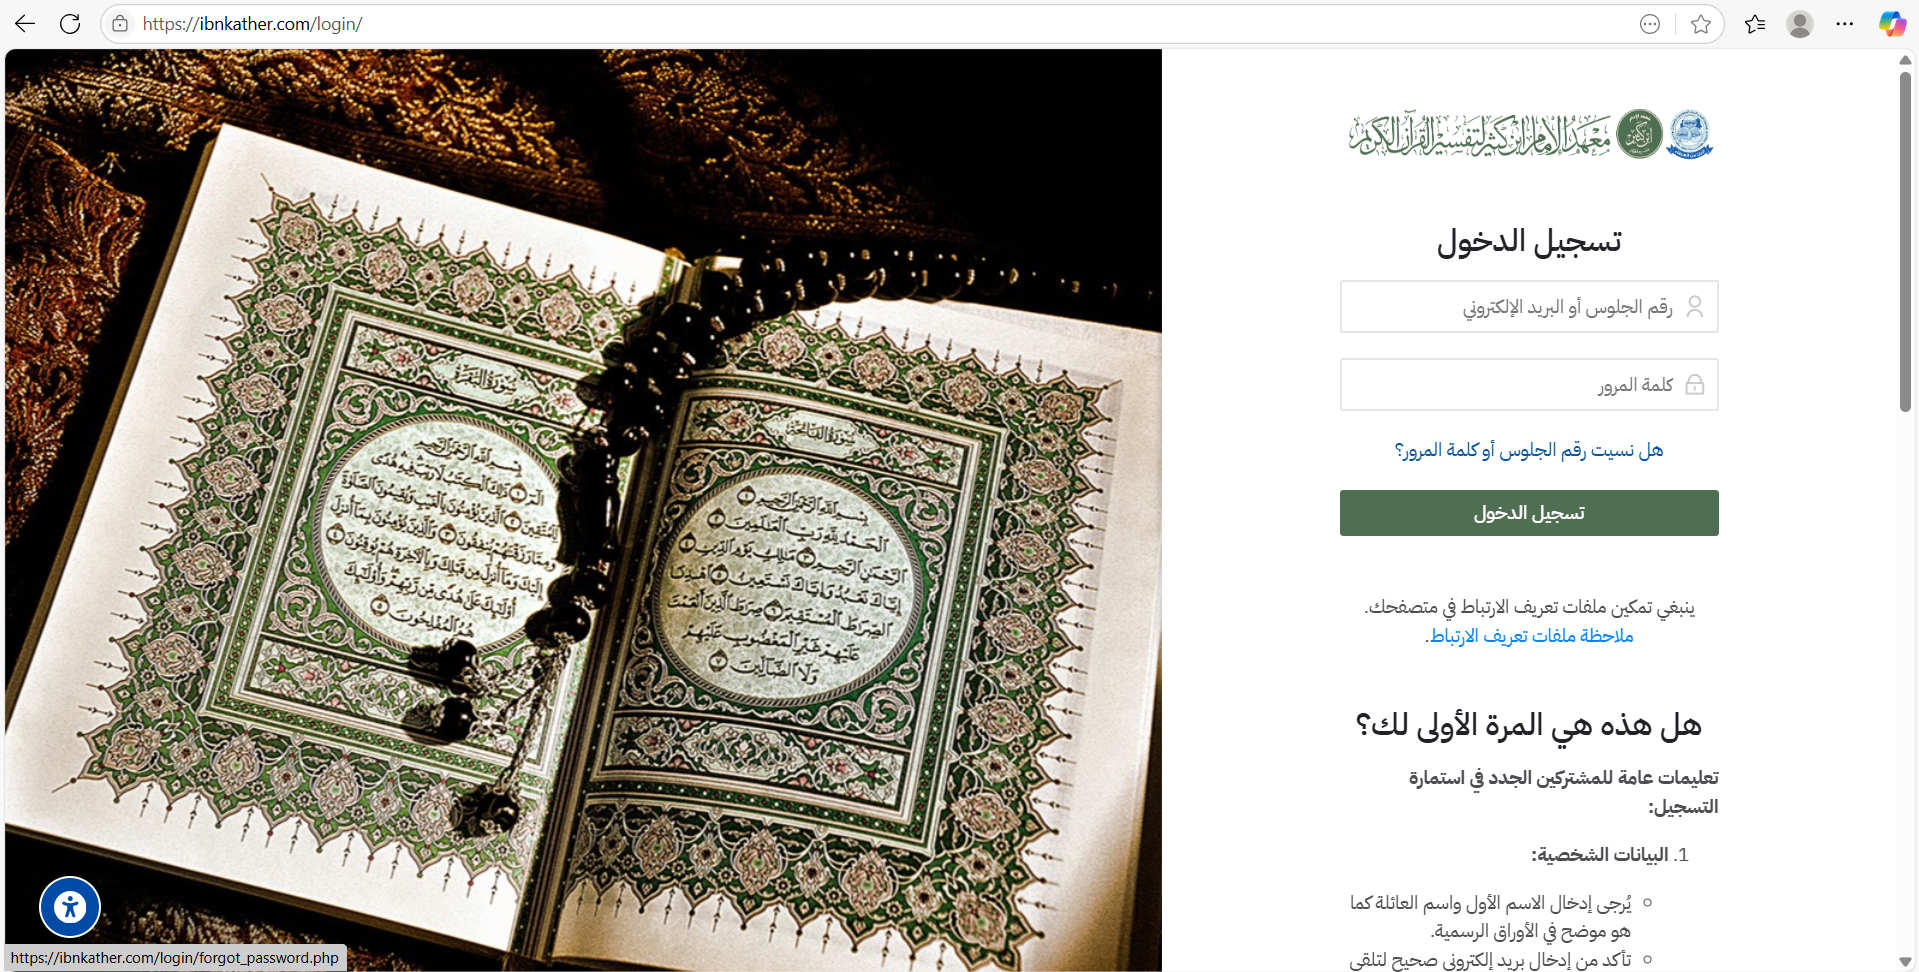 https://ibnkather.com/login/
معهد الإمام ابن كثير لتفسير القرآن الكريم
تسجيل الدخول
رقم الجلوس أو البريد الإلكتروني
كلمة المرور
هل نسيت رقم الجلوس أو كلمة المرور؟
تسجيل الدخول
ينبغي تمكين ملفات تعريف الارتباط في متصفحك.
ملاحظة ملفات تعريف الارتباط.
هل هذه هي المرة الأولى لك؟
تعليمات عامة للمشتركين الجدد في استمارة
التسجيل:
1. البيانات الشخصية:
يُرجى إدخال الاسم الأول واسم العائلة كما
هو موضح في الأوراق الرسمية.
تأكد من إدخال بريد إلكتروني صحيح لتلقي
سُورَةُ الفَاتِحَةِ
بِسْمِ ٱللَّهِ ٱلرَّحْمَٰنِ ٱلرَّحِيمِ ١
ٱلْحَمْدُ لِلَّهِ رَبِّ ٱلْعَٰلَمِينَ ٢
ٱلرَّحْمَٰنِ ٱلرَّحِيمِ ٣ مَٰلِكِ يَوْمِ ٱلدِّينِ ٤
إِيَّاكَ نَعْبُدُ وَإِيَّاكَ نَسْتَعِينُ ٥ ٱهْدِنَا
ٱلصِّرَٰطَ ٱلْمُسْتَقِيمَ ٦ صِرَٰطَ ٱلَّذِينَ أَنْعَمْتَ
عَلَيْهِمْ غَيْرِ ٱلْمَغْضُوبِ عَلَيْهِمْ
وَلَا ٱلضَّآلِّينَ ٧
سُورَةُ البَقَرَةِ
بِسْمِ ٱللَّهِ ٱلرَّحْمَٰنِ ٱلرَّحِيمِ
الٓمٓ ١ ذَٰلِكَ ٱلْكِتَٰبُ لَا رَيْبَ فِيهِ هُدًى
لِّلْمُتَّقِينَ ٢ ٱلَّذِينَ يُؤْمِنُونَ بِٱلْغَيْبِ وَيُقِيمُونَ ٱلصَّلَوٰةَ
وَمِمَّا رَزَقْنَٰهُمْ يُنفِقُونَ ٣ وَٱلَّذِينَ يُؤْمِنُونَ بِمَآ أُنزِلَ
إِلَيْكَ وَمَآ أُنزِلَ مِن قَبْلِكَ وَبِٱلْءَاخِرَةِ هُمْ يُوقِنُونَ ٤
أُو۟لَٰٓئِكَ عَلَىٰ هُدًى مِّن رَّبِّهِمْ وَأُو۟لَٰٓئِكَ
هُمُ ٱلْمُفْلِحُونَ ٥
https://ibnkather.com/login/forgot_password.php